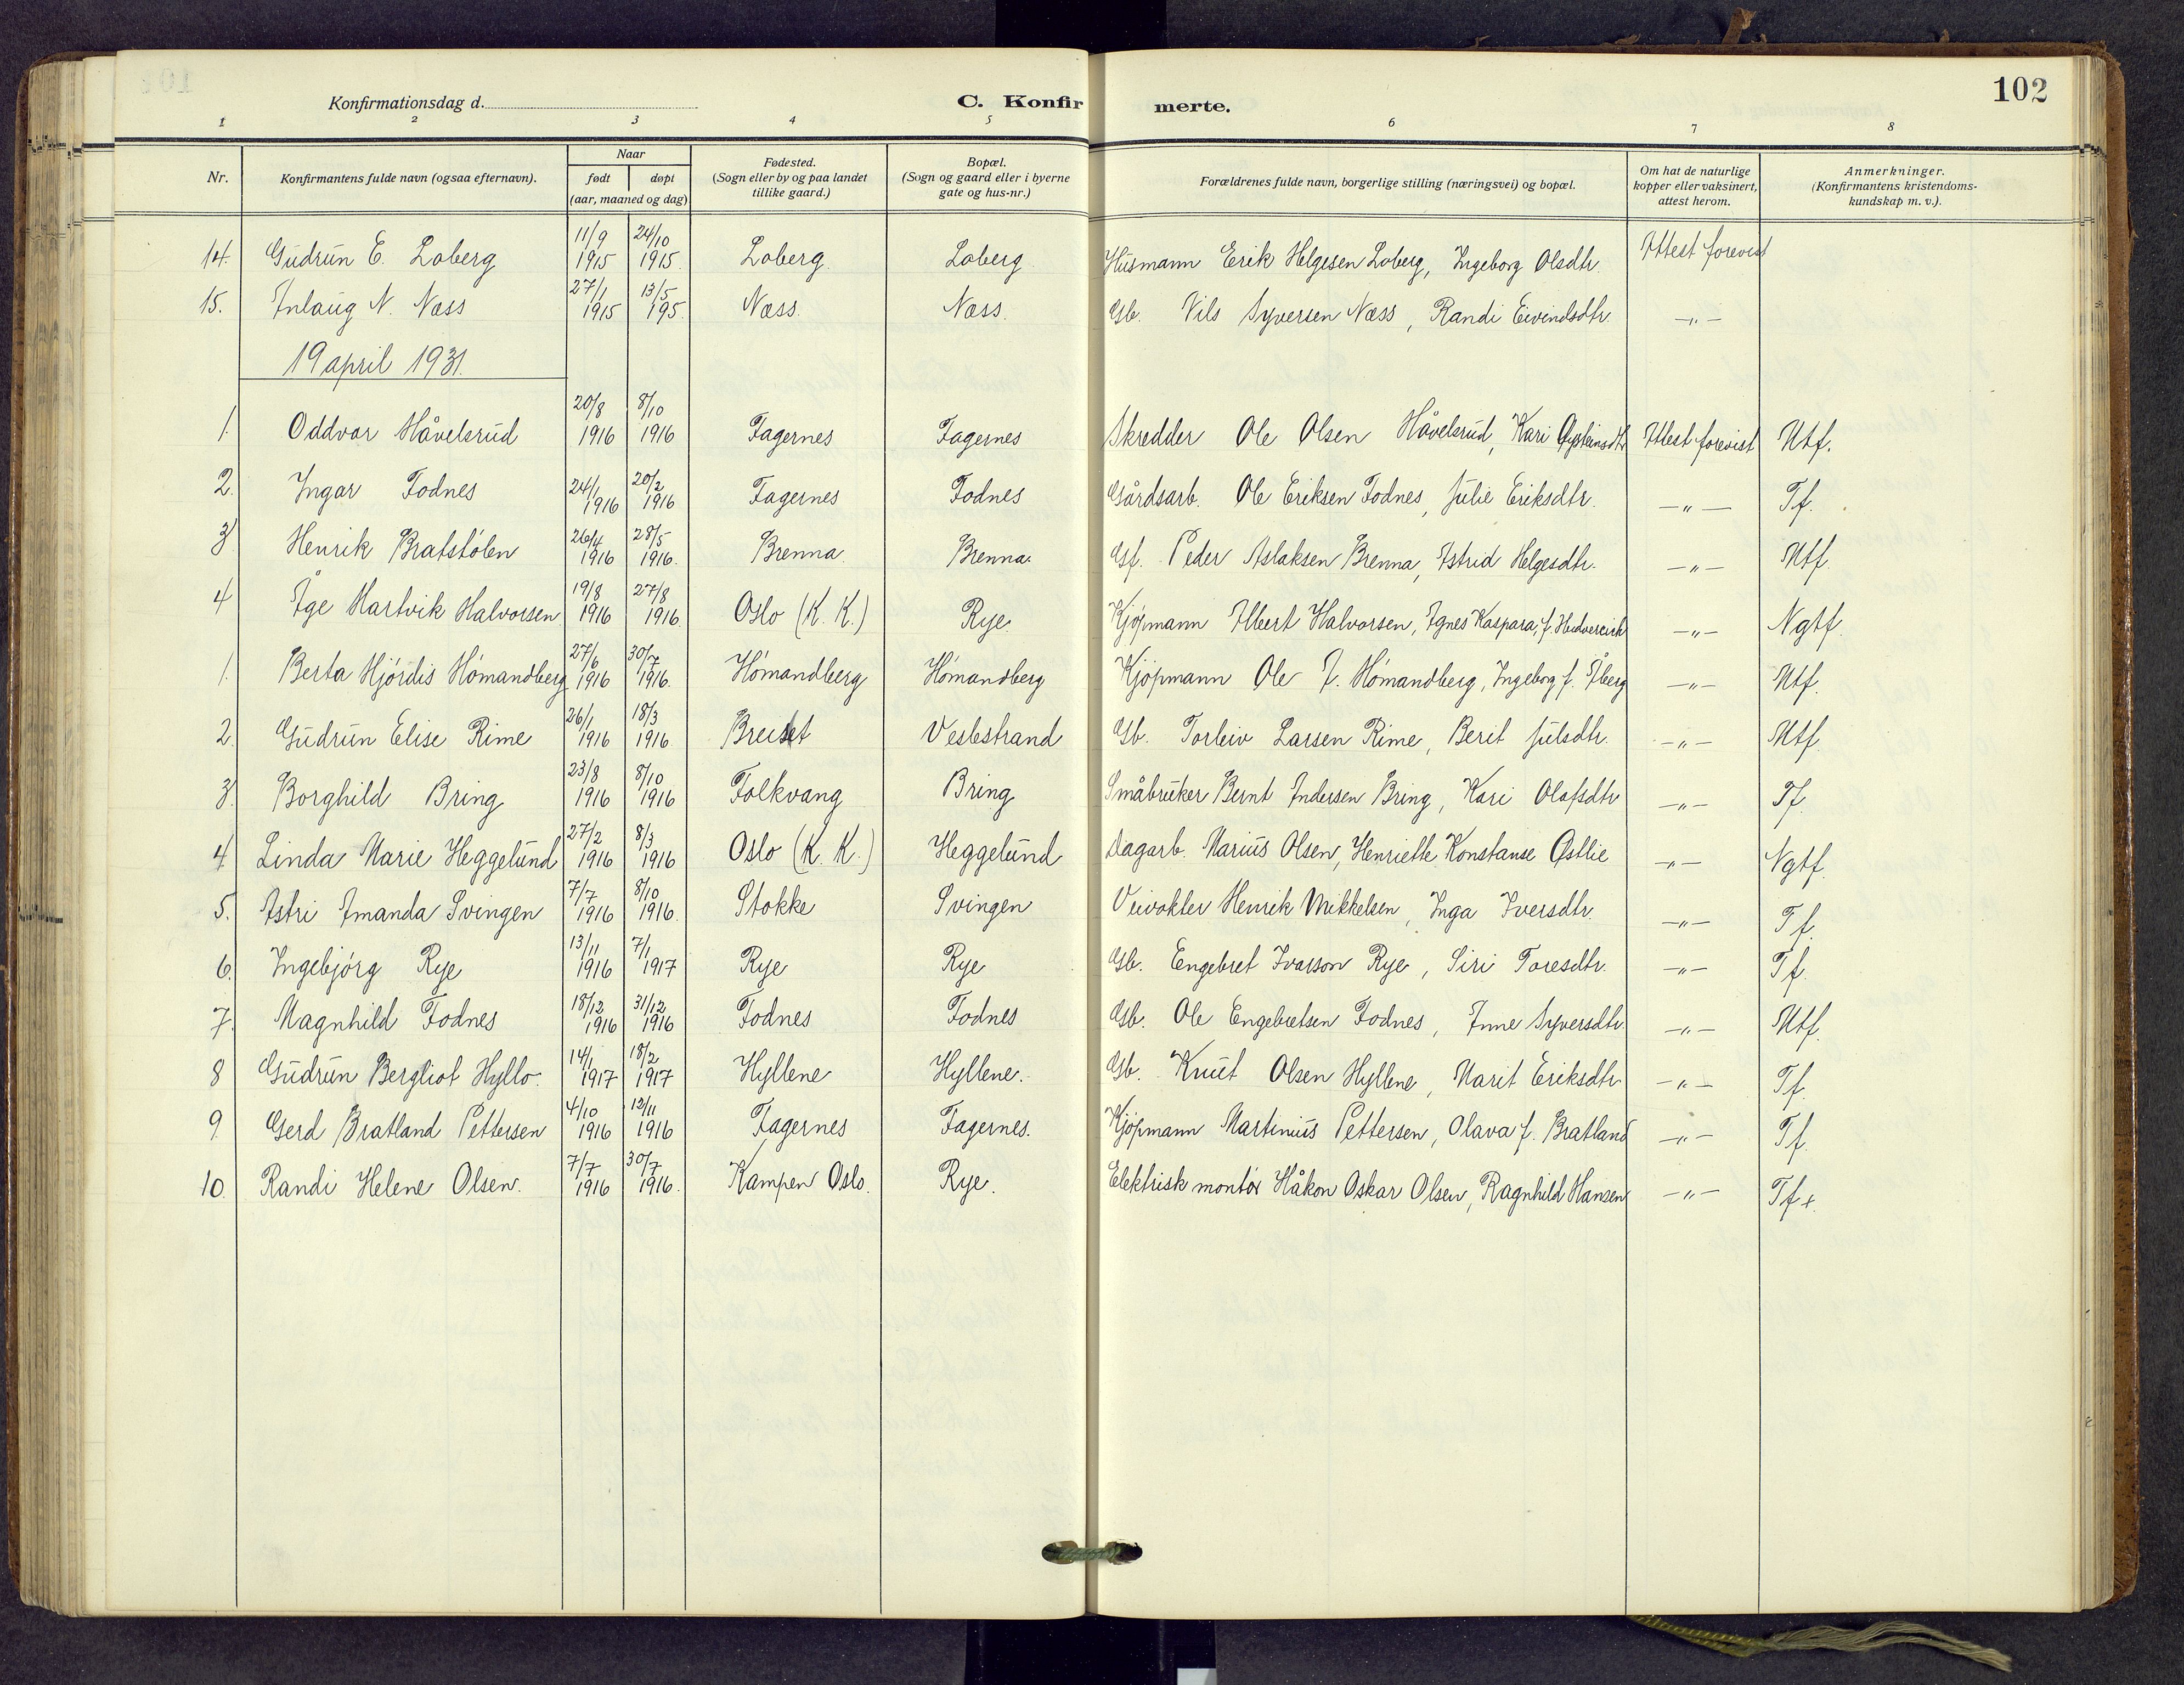 102
Konfirmationsdag d. C. Konfirmerte.
1 2 3 4 5 6 7 8
Nr. Konfirmantens fulde navn (ogsaa efternavn). Naar født døpt (aar, maaned og dag) Fødested. (Sogn eller by og paa landet tillike gaard.) Bopæl. (Sogn og gaard eller i byerne gate og hus-nr.) Forældrenes fulde navn, borgerlige stilling (næringsvei) og bopæl. Om hat de naturlige kopper eller vaksinert, attest herom. Anmerkninger. (Konfirmantens kristendoms-kundskap m. v.).
14. Gudrun E. Loberg 11/9 1915 24/10 1915. Loberg. Loberg Husmann Erik Helgesen Loberg, Ingeborg Olsdtr. Attest forevist
15. Anlaug N. Næss 27/1 1915 13/5 195. Næss. Næss. Gb. Nils Syversen Næss, Randi Eivindsdtr. —"—
19 april 1931.
1. Oddvar Håvelsrud 20/8 1916 8/10 1916 Fagernes Fagernes Skredder Ole Olsen Håvelsrud, Kari Øysteinsdtr. Attest forevist Mtf.
2. Ingar Fodnes 24/1 1916 20/2 1916 Fagernes Fodnes Gårdsarb. Ole Eriksen Fodnes, Julie Eriksdtr. —"— Tf.
3 Henrik Bratstølen 26/4 1916 28/5 1916. Brenna. Brenna. Gf. Peder Aslaksen Brenna, Astrid Helgesdtr. —"— Mtf.
4 Åge Hartvik Halvorsen 19/8 1916 27/8 1916 Oslo (K. K.) Rye. Kjøpmann Albert Halvorsen, Agnes Kaspara, f. —"— Ngtf.
1. Berta Hjørdis Hømandberg 27/6 1916 30/7 1916. Hømandberg Hømandberg Kjøpmann Ole J. Hømandberg, Ingeborg f. Åberg —"— Mtf.
2. Gudrun Elise Rime 26/1 1916 18/3 1916. Breiset Veslestrand Gb. Torleiv Larsen Rime, Berit Julsdtr. —"— Mtf.
3. Borghild Bring 23/8 1916 8/10 1916 Folkvang Bring Småbruker Bernt Andersen Bring, Kari Olafsdtr —"— Tf.
4. Linda Marie Heggelund 27/2 1916 8/3 1916 Oslo (K. K.) Heggelund Dagarb. Marius Olsen, Henriette Konstanse Østlie —"— Ngtf.
5. Astri Amanda Svingen 7/7 1916 8/10 1916. Stokke Svingen Veivokter Henrik Mikkelsen, Inga Iversdtr. —"— Tf.
6. Ingebjørg Rye 13/11 1916 7/1 1917 Rye Rye Gb. Engebret Ivarson Rye, Siri Toresdtr. —"— Tf.
7. Magnhild Fodnes 18/12 1916 31/12 1916 Fodnes Fodnes Gb. Ole Engebretsen Fodnes, Anne Syversdtr. —"— Mtf.
8 Gudrun Bergliot Hyllo. 14/1 1917 18/2 1917 Hyllene Hyllene. Gb. Knut Olsen Hyllene, Marit Eriksdtr. —"— Tf.
9. Gerd Bratland Pettersen 4/10 1916 12/11 1916 Fagernes Fagernes. Kjøpmann Martinius Pettersen, Olava f. Bratland —"— Tf.
10. Randi Helene Olsen. 7/7 1916 30/7 1916. Kampen Oslo. Rye. Elektrisk montør Håkon Oskar Olsen, Ragnhild Hansen —"— Tf+.